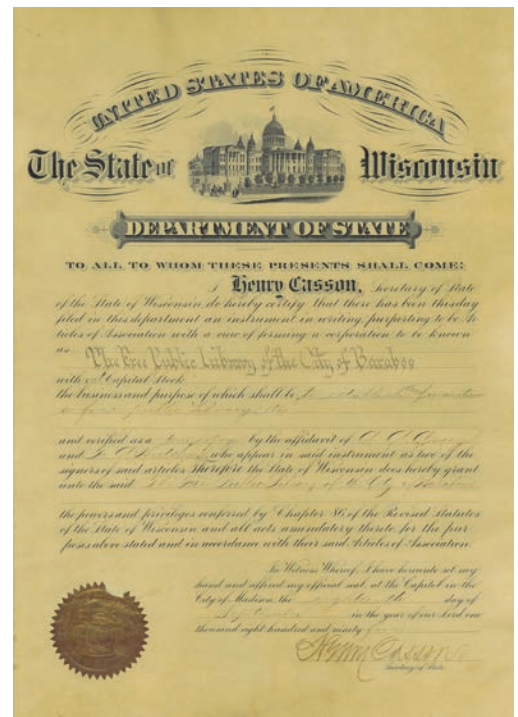 UNITED STATES OF AMERICA
The State of Wisconsin
DEPARTMENT OF STATE
TO ALL TO WHOM THESE PRESENTS SHALL COME:
I Henry Casson, Secretary of State
of the State of Wisconsin, do hereby certify that there has been this day
filed in this department an instrument in writing, purporting to be Ar-
ticles of Association with a view of forming a corporation to be known
as The Free Public Library of the City of Baraboo
with Capital Stock
the business and purpose of which shall be to establish
a free public library
and verified as a by the affidavit of
and who appear in said instrument as two of the
signers of said articles Therefore the State of Wisconsin does hereby grant
unto the said The Free Public Library of the City of Baraboo
the powers and privileges conferred by Chapter 86 of the Revised Statutes
of the State of Wisconsin and all acts amendatory thereto for the pur-
poses above stated and in accordance with their said Articles of Association.
In Witness Whereof, I have hereunto set my
hand and affixed my official seal, at the Capitol in the
City of Madison, the day of
in the year of our Lord one
thousand eight hundred and ninety
Henry Casson
Secretary of State